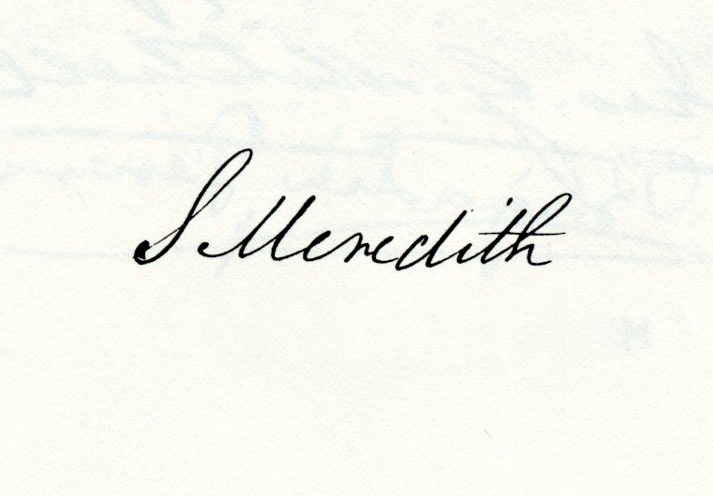 S Meredith